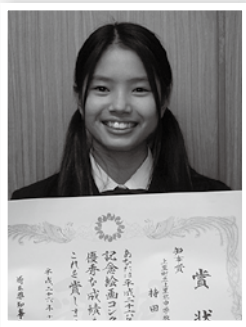 賞状
知事賞
持田
あなたは
記念絵画コンク
優秀な成績
これを賞しま
平成二十六年十
埼玉県知事